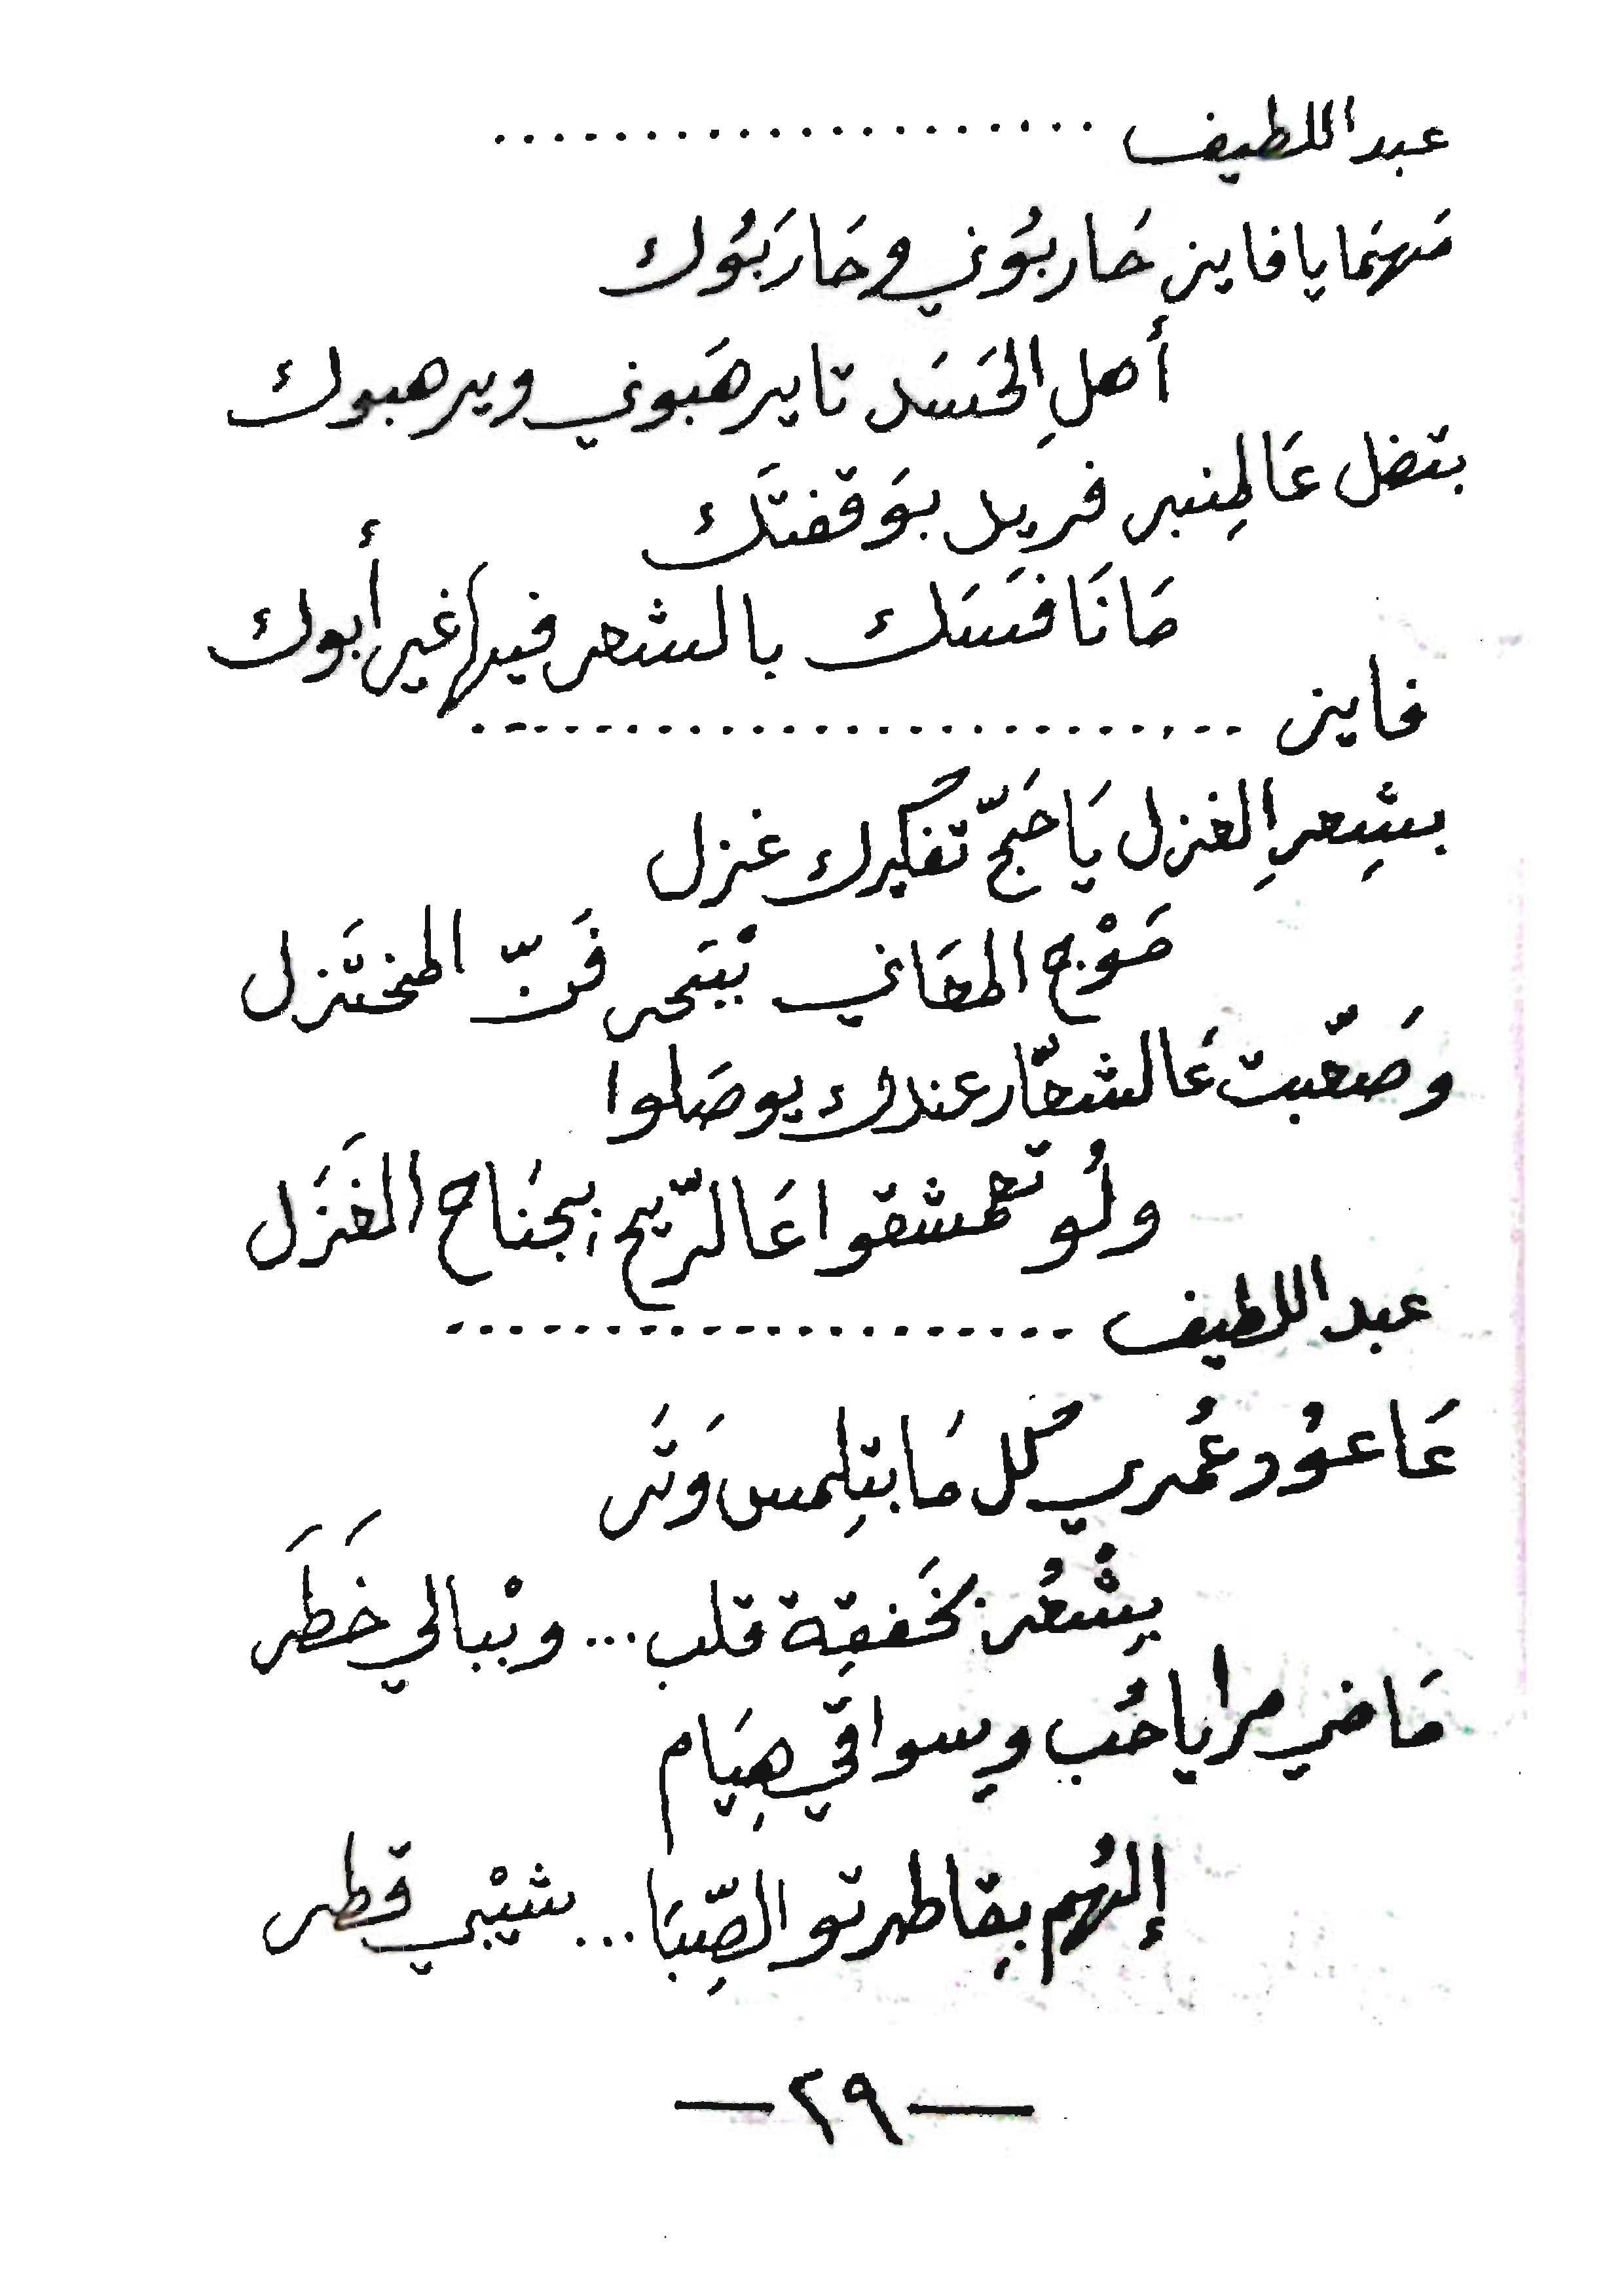 عبد اللطيف ....................
مَهمَا يا فايز حَاربُوني وحَارَبُوك
أهلِ الحَسَد تا يرهَبوني ويرهبوك
بتضل عَالمِنبر فريد بوَقفتَك
مَا نَافسَك بالشعر فيها غير أبوك
فايز .........................
بشِعرِ الغزل يَا حَجّ تفكيرك غزل
مَوْج المعَاني بْبَحر فَنّ المختَزل
وصَعّبت عَالشعّار عندك يوصَلوا
ولُو تعمشقوا عَالرّيح بجنَاح الغَزَل
عبد اللطيف ....................
عَا عوُد عُمري كُل مَا بتِلمس وَتَر
بِشْعُر بخَفقِة قلب ... وبْبالي خَطَر
مَاضي مرايا حُب وسواقي هِيَام
إلهُم بِقاطرتو الصِّبَا ... شيْبي قطر
— ٢٩ —